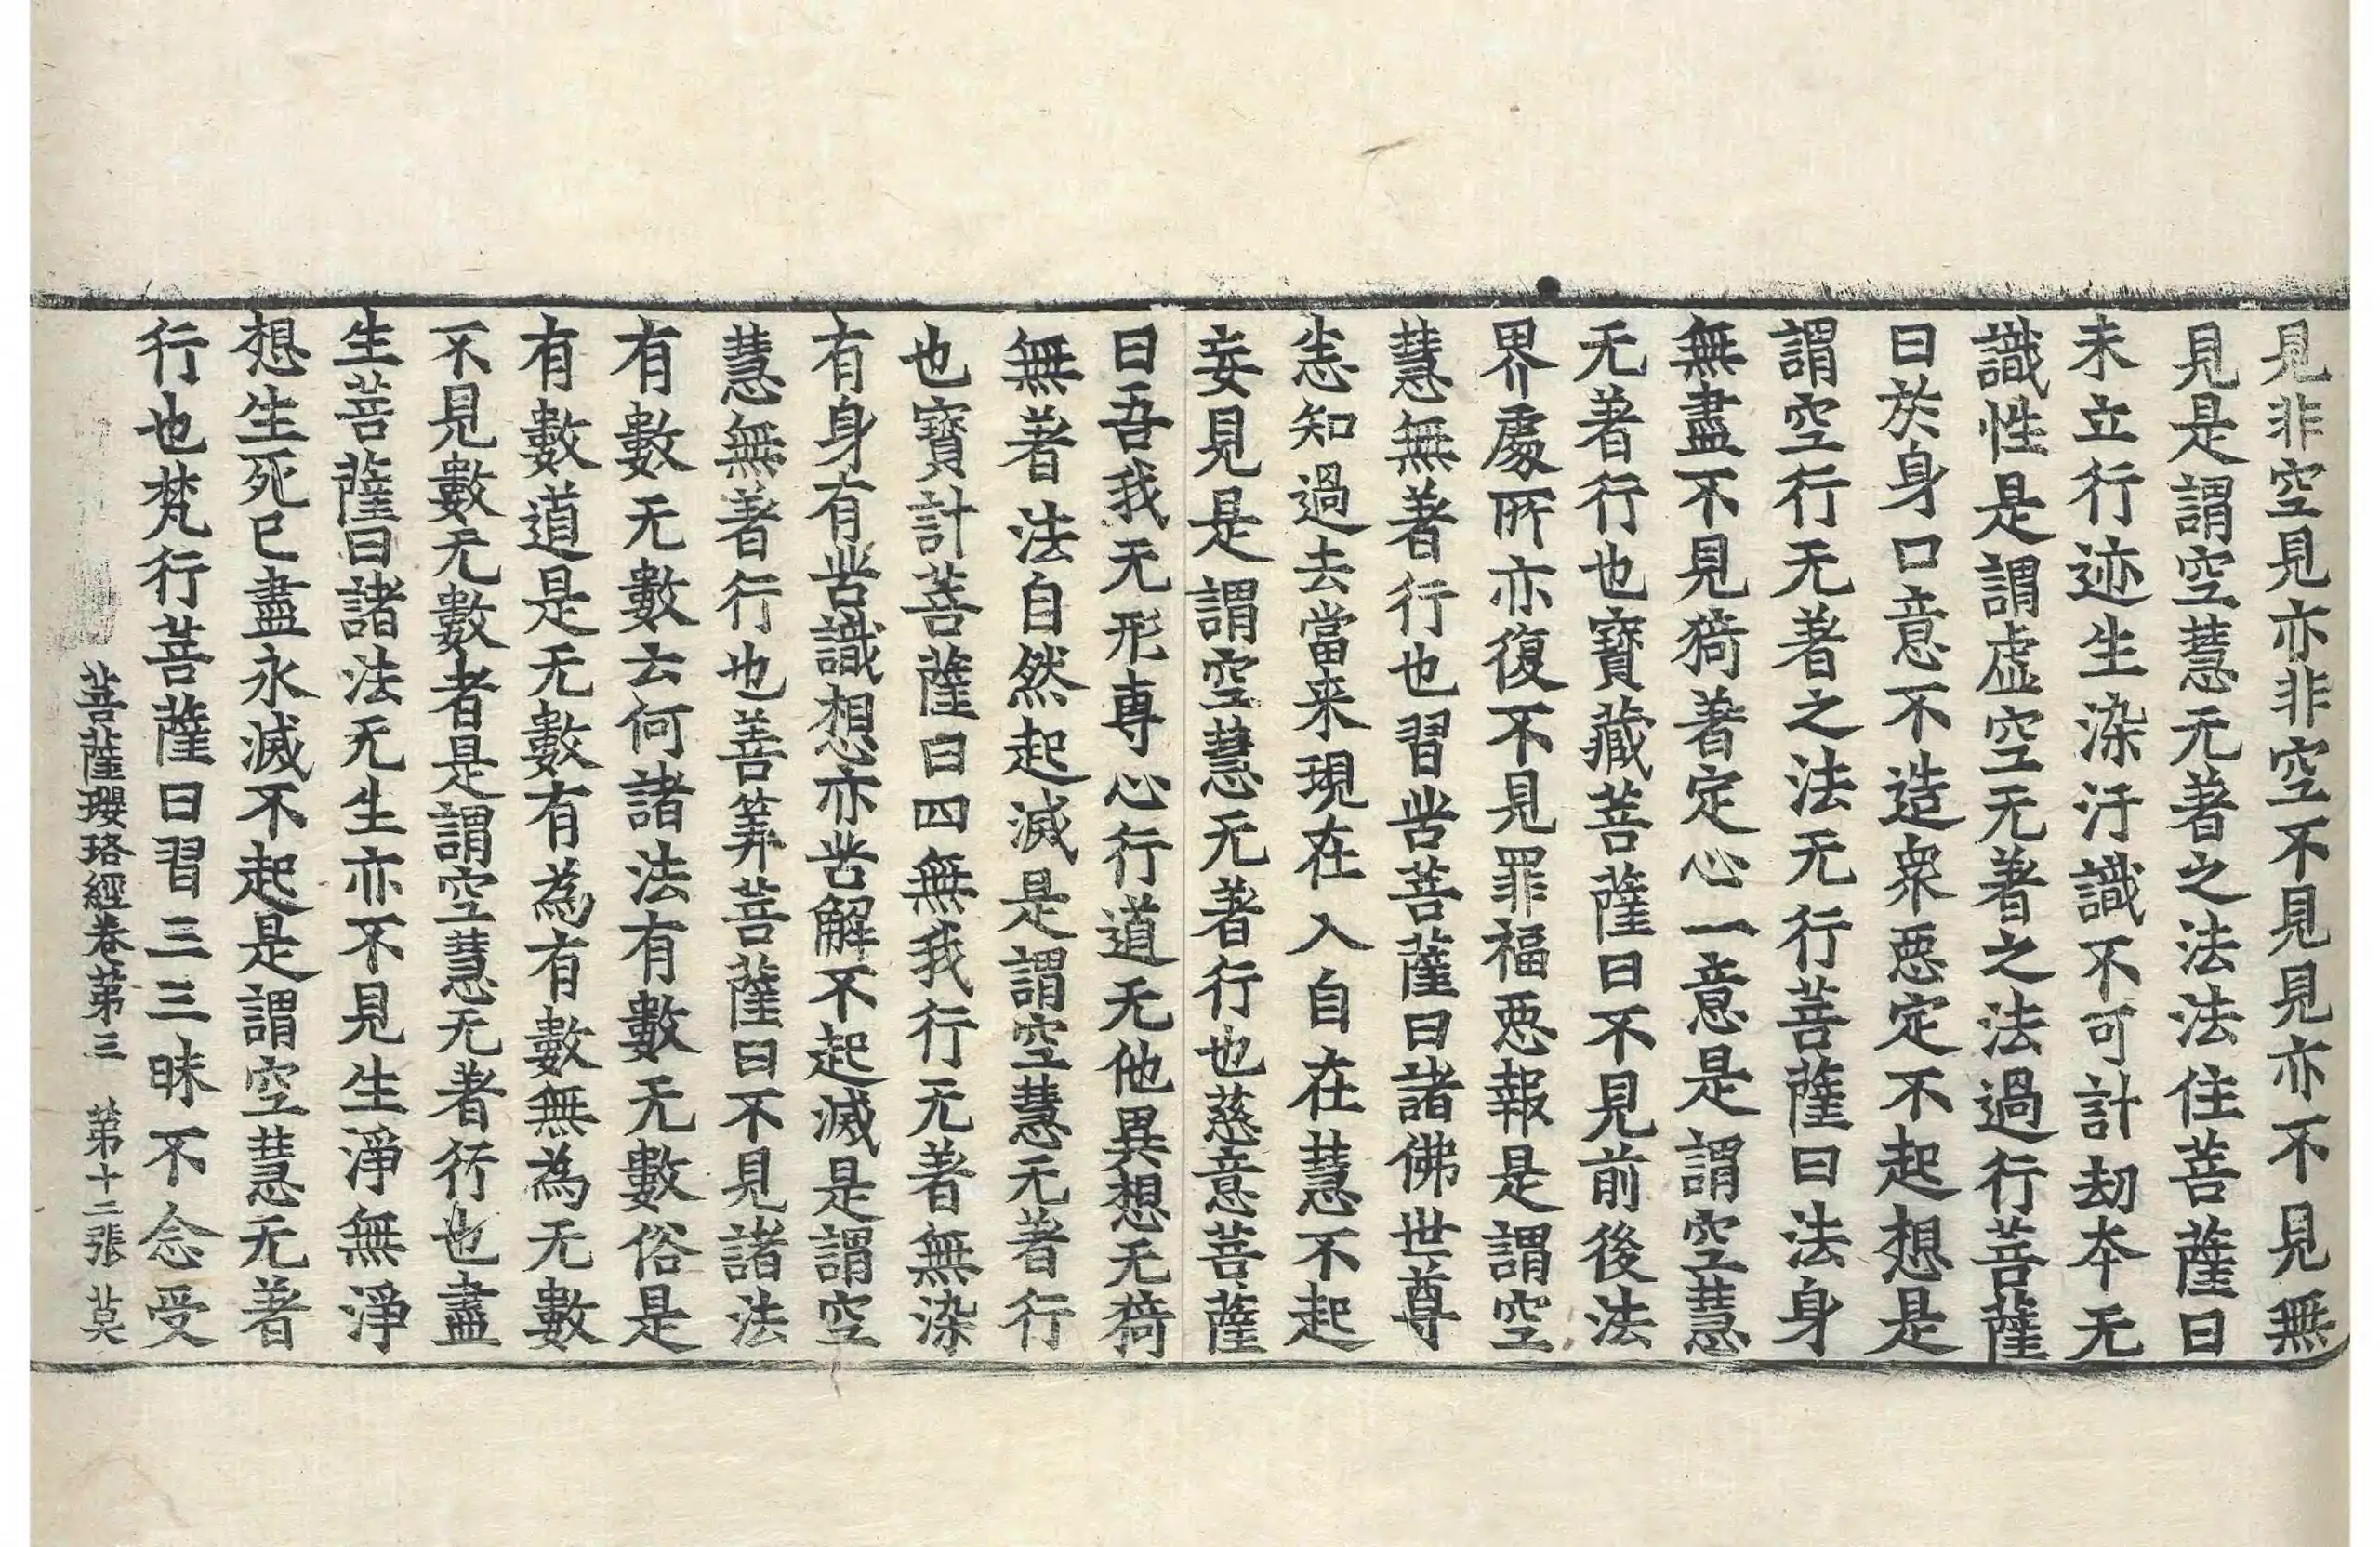 見非空見亦非空不見見亦不見無
見是謂空慧无著之法法住菩薩曰
未立行迹生染汙識不可計劫本无
識性是謂虛空无著之法過行菩薩
曰於身口意不造衆惡定不起想是
謂空行无著之法无行菩薩曰法身
無盡不見猗著定心一意是謂空慧
无著行也寶藏菩薩曰不見前後法
界處所亦復不見罪福惡報是謂空
慧無著行也習苦菩薩曰諸佛世尊
悉知過去當来現在入自在慧不起
妄見是謂空慧无著行也慈意菩薩
曰吾我无形專心行道无他異想无猗
無著法自然起滅是謂空慧无著行
也寶計菩薩曰四無我行无著無染
有身有苦識想亦苦解不起滅是謂空
慧無著行也善筭菩薩曰不見諸法
有數无數云何諸法有數无數俗是
有數道是无數有為有數無為无數
不見數无數者是謂空慧无著行也盡
生菩薩曰諸法无生亦不見生淨無淨
想生死已盡永滅不起是謂空慧无著
行也梵行菩薩曰習三三昧不念受
菩薩瓔珞經卷第三 第十二張 莫